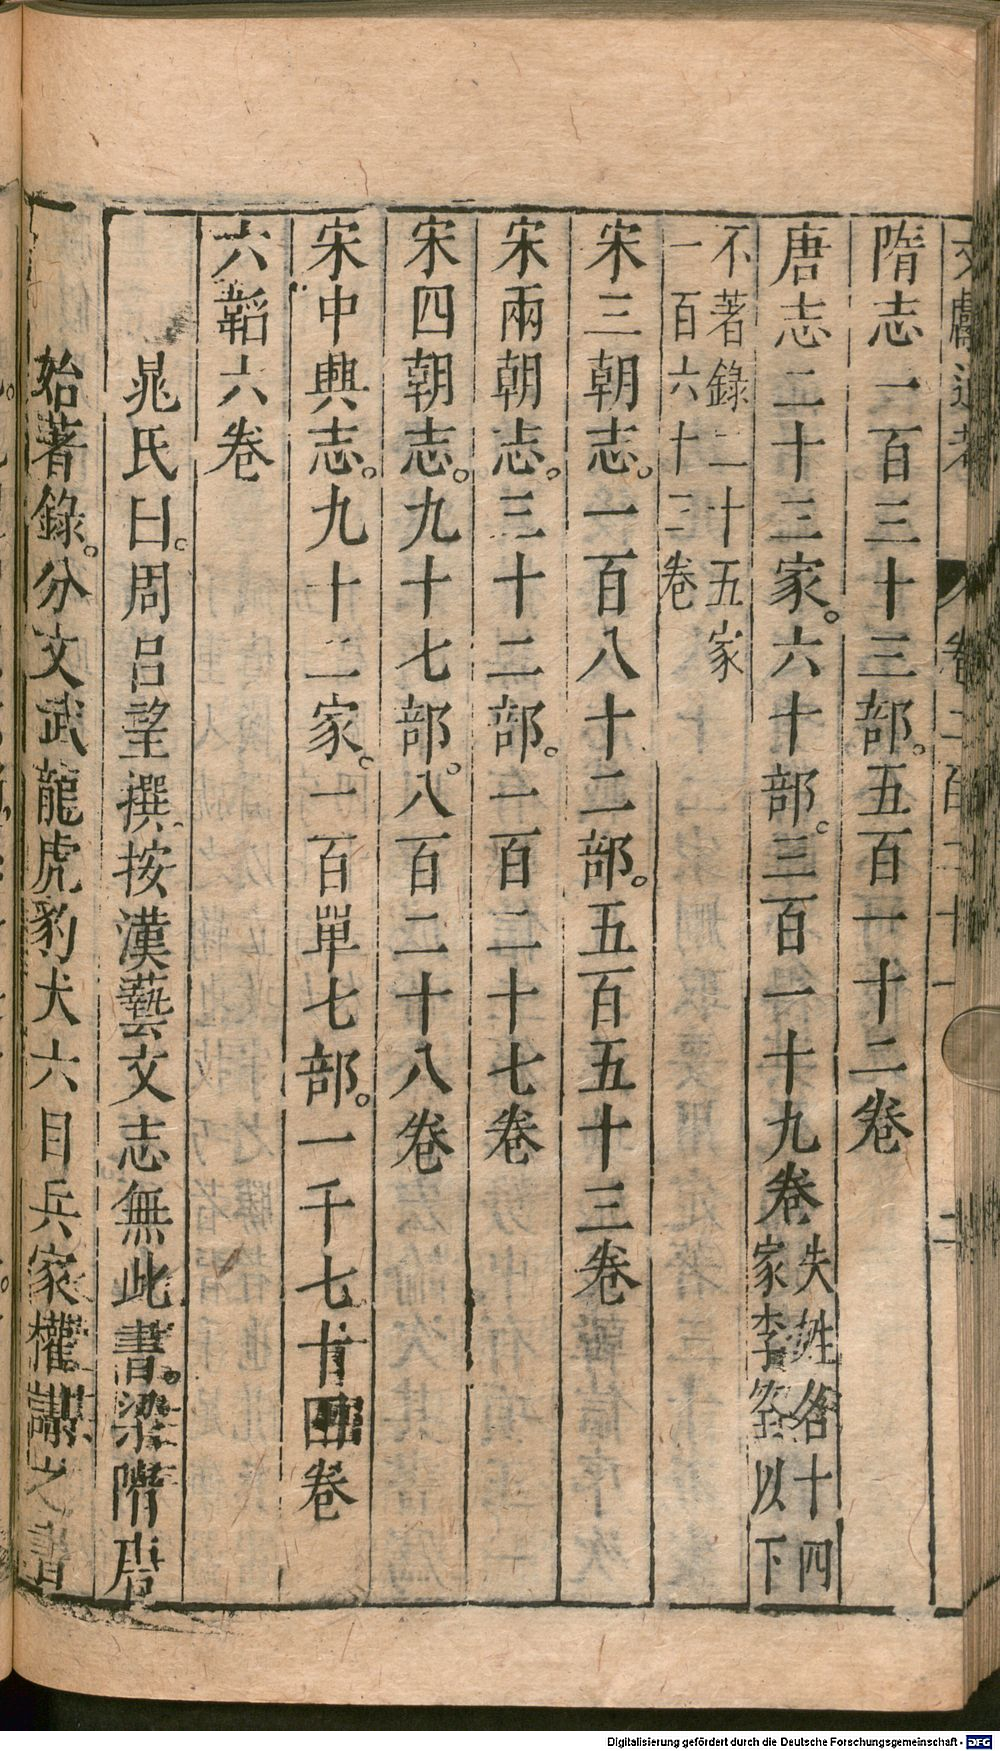 文獻通考 卷二百二十一 二
隋志一百三十三部。五百一十二卷
唐志二十三家。六十部。三百一十九卷失姓名十四家李筌以下
不著錄二十五家
一百六十三卷
宋三朝志。一百八十二部。五百五十三卷
宋兩朝志。三十二部。一百二十七卷
宋四朝志。九十七部。八百二十八卷
宋中興志。九十二家。一百單七部。一千七十卷
六韜六卷
晁氏曰。周呂望撰。按漢藝文志無此書。梁隋唐
始著錄。分文武龍虎豹犬六目兵家權謀之書
Digitalisierung gefördert durch die Deutsche Forschungsgemeinschaft - DFG